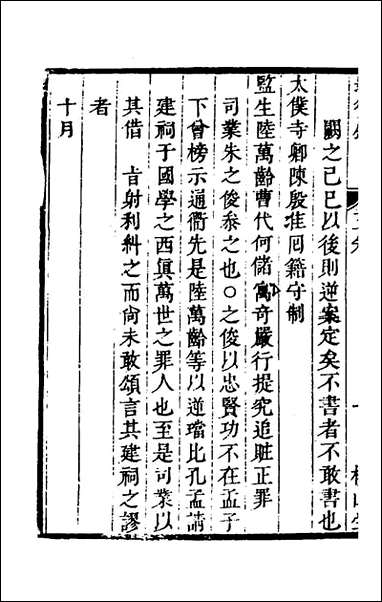 闕之己巳以後則逆案定矣不書者不敢書也
太僕寺卿陳殷准囘籍守制
監生陸萬齡曹代何儲㝢奇嚴行提究追賍正罪
司業朱之俊叅之也○之俊以忠賢功不在孟子
下曾榜示通衢先是陸萬齡等以逆璫比孔孟請
建祠于國學之西眞萬世之罪人也至是司業以
其借　旨射利糾之而尙未敢頌言其建祠之謬
者
十月